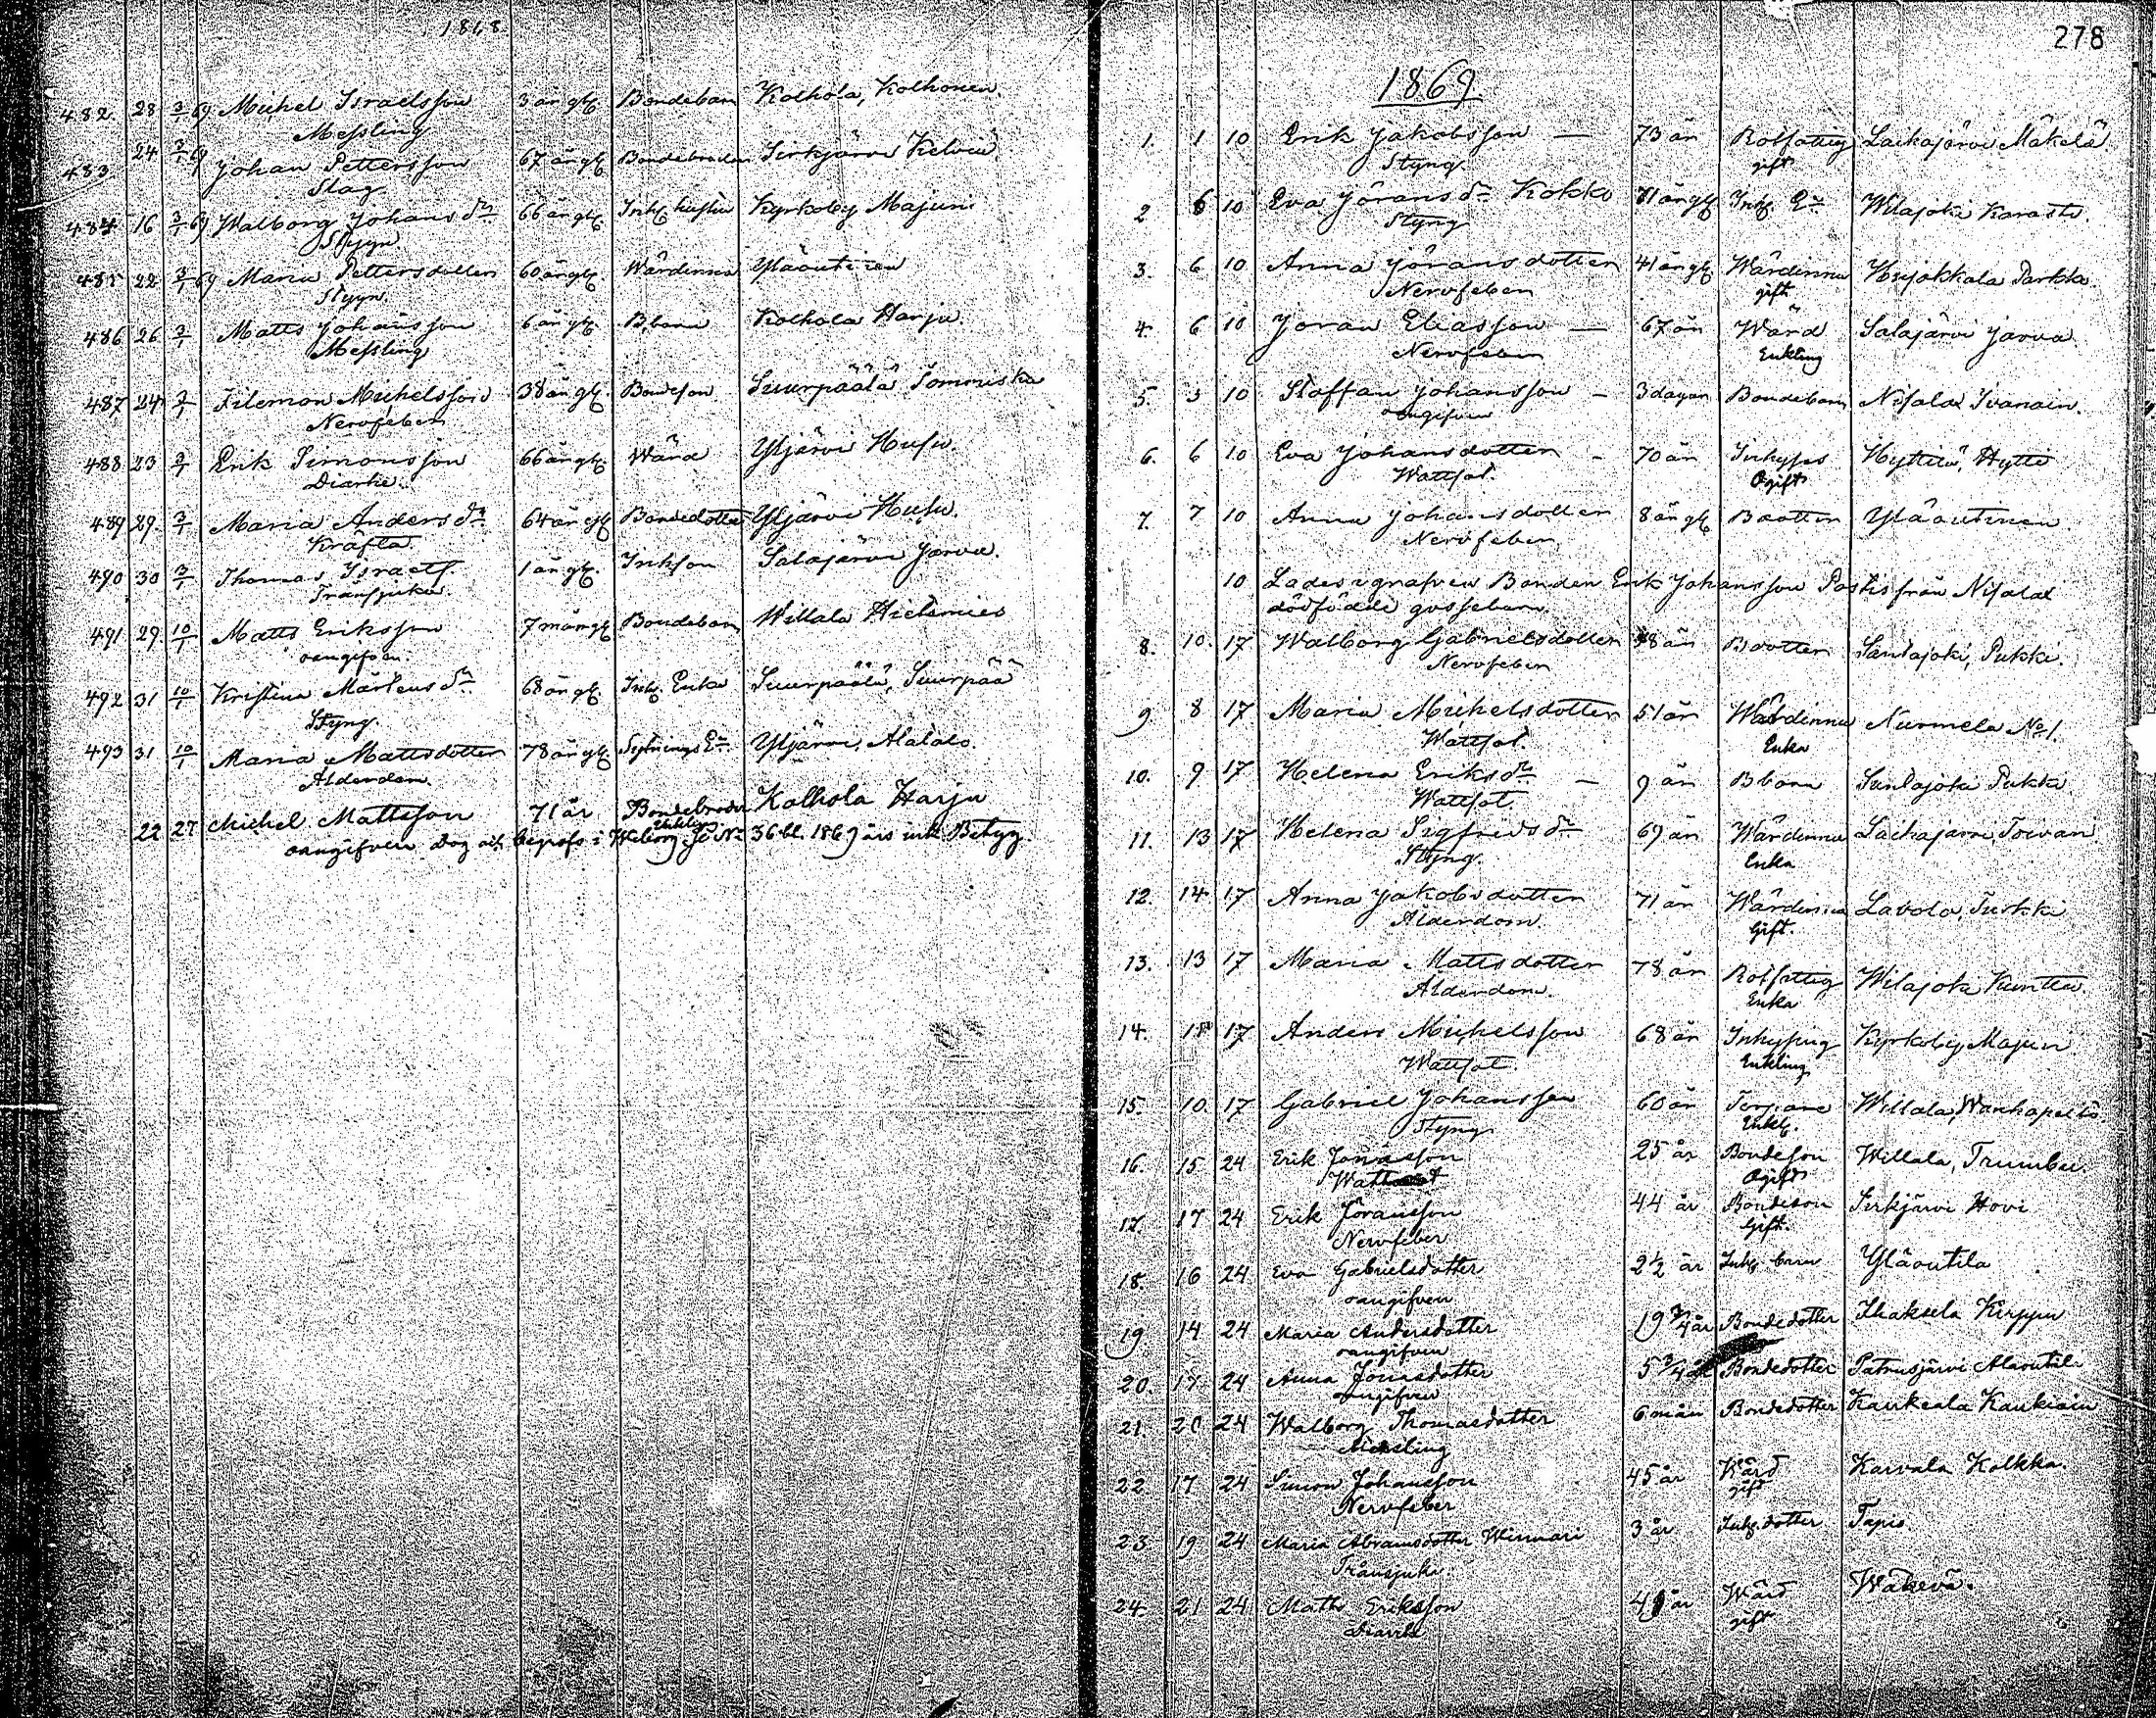 1868.
482. 28 3/1 69 Michel Israelsson 3 år gl. Bondebarn Kolhola, Kolhonen
Messling
483. 24 3/1 69 Johan Pettersson 67 år gl. Bondebroder Sirkjärvi Kelvii
Slag
484 16 3/1 69 Walborg Johans dr 66 år gl. Inh. hustru Kyrkoby Majuri
Styng
485 22 3/1 69 Maria Pettersdotter 60 år gl. Wärdinna Yläoutinen
Styng
486 26 3/1 Matts Johansson 6 år gl. B.barn Kolhola Harju
Messling
487 24 3/1 Filemon Michelsson 38 år gl. Bondeson Suurpäälä Tommiska
Nervfeber
488 23 3/1 Erik Simonsson 66 år gl. Wärd Yljärvi Husu.
Diarhé.
489 29. 3/1 Maria Anders dr 64 år gl. Bondedotter Yljärvi Husu.
Kräfta.
490 30 3/1 Thomas Israelss. 1 år gl. Inhson Salajärvi Jarva.
Trånsjuka.
491 29. 10/1 Matts Eriksson 7 mån gl. Bondebarn Willala Hietamies
oangifven.
492 31 10/1 Kristina Mårtens dr 68 år gl. Inh. Enka Suurpäälä, Suurpää
Styng.
493 31 10/1 Maria Mattsdotter 78 år gl. Sytnings E. Yljärvi, Alatalo.
Ålderdom.
22 27 Michel Mattsson 71 år Bondebroder Kolhola Harju
Enkling
oangifven Dog och begrofs i Wiborg, Se No 36 bl. 1869 års ink. Betyg.
278
1869.
1. 1 10 Erik Jakobsson — 73 år Rotfattig Laikajärvi Mäkelä
Styng. gift
2 6 10 Eva Jörans dr Kokko 71 år gl. Inh. E. Wilajoki Karasti.
Styng
3. 6 10 Anna Jöransdotter 41 år gl. Wärdinna Heijokkala Parkka
Nervfeber gift
4. 6 10 Jöran Eliasson — 67 år Wärd Salajärvi Jarva.
Nervfeber Enkling
5. 3 10 Staffan Johansson — 3 dagar Bondebarn Nisalax Ivanain.
oangifven
6. 6 10 Eva Johansdotter - 70 år Inhyses Hyttilä, Hytti
Wattsot. Ogift
7. 7 10 Anna Johansdotter 8 år gl. Bdotter Yläoutinen
Nervfeber
10 Lades i grafven Bonden Erik Johansson Paskis från Nisalax
dödfödde gossebarn.
8. 10. 17 Walborg Gabrielsdotter 8 år Bdotter Säntajoki, Pukki.
Nervfeber
9 8 17 Maria Michelsdotter 51 år Wärdinna Nurmela No 1.
Wattsot. Enka
10. 9 17 Helena Eriks dr — 9 år Bbarn Säntajoki Pukki
Wattsot.
11. 13 17 Helena Sigfrids dr 69 år Wärdinna Laikajärvi, Toivan
Styng Enka
12. 14 17 Anna Jakobsdotter 71 år Wärdinna Lavola, Turkki
Ålderdom. Gift.
13. 13 17 Maria Mattsdotter 78 år Rotfattig Wilajoki Kunttu.
Ålderdom. Enka
14. 18 17 Anders Michelsson 68 år Inhysing Kyrkoby Majuri
Wattsot. Enkling
15. 10. 17 Gabriel Johansson 60 år Torpare Willala, Wanhapelto
Styng Enkl.
16. 15 24 Erik Jonasson 25 år Bondeson Willala, Trumbu.
Wattsot Ogift
17. 17 24 Erik Jöransson 44 år Bondeson Sirkjärvi Hovi
Nervfeber Gift.
18. 16 24 Eva Gabrielsdotter 2 1/2 år Inh. barn Yläoutila
oangifven
19 14 24 Maria Andersdotter 19 3/4 år Bondedotter Ihaksela Kirppu
oangifven
20. 17 24 Anna Jonasdotter 5 3/4 år Bondedotter Paimsjärvi Alaoutila
oangifven
21. 20 24 Walborg Thomasdotter 6 mån Bondedotter Kaukeala Kaukiain
Messling
22. 17 24 Simon Johansson 45 år Wärd Karvala Kolkka.
Nervfeber gift
23. 19 24 Maria Abramsdotter Wirmari 3 år Inh. dotter Tapio.
Trånsjuka.
24. 21 24 Matts Eriksson år Wärd Wäkevä.
Diarrhé gift